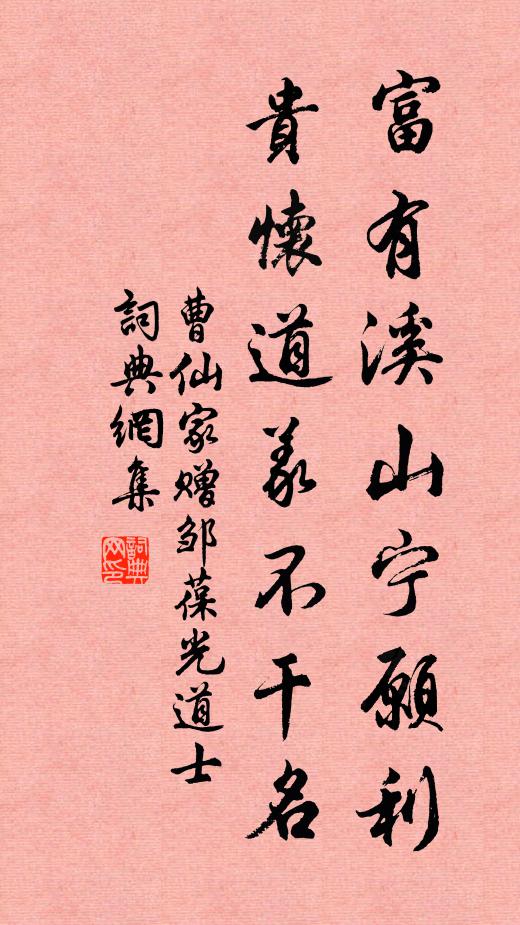 富有溪山宁願利
貴懷道義不干名
曹仙家赠邹葆光道士
詞典網集
詞典网印